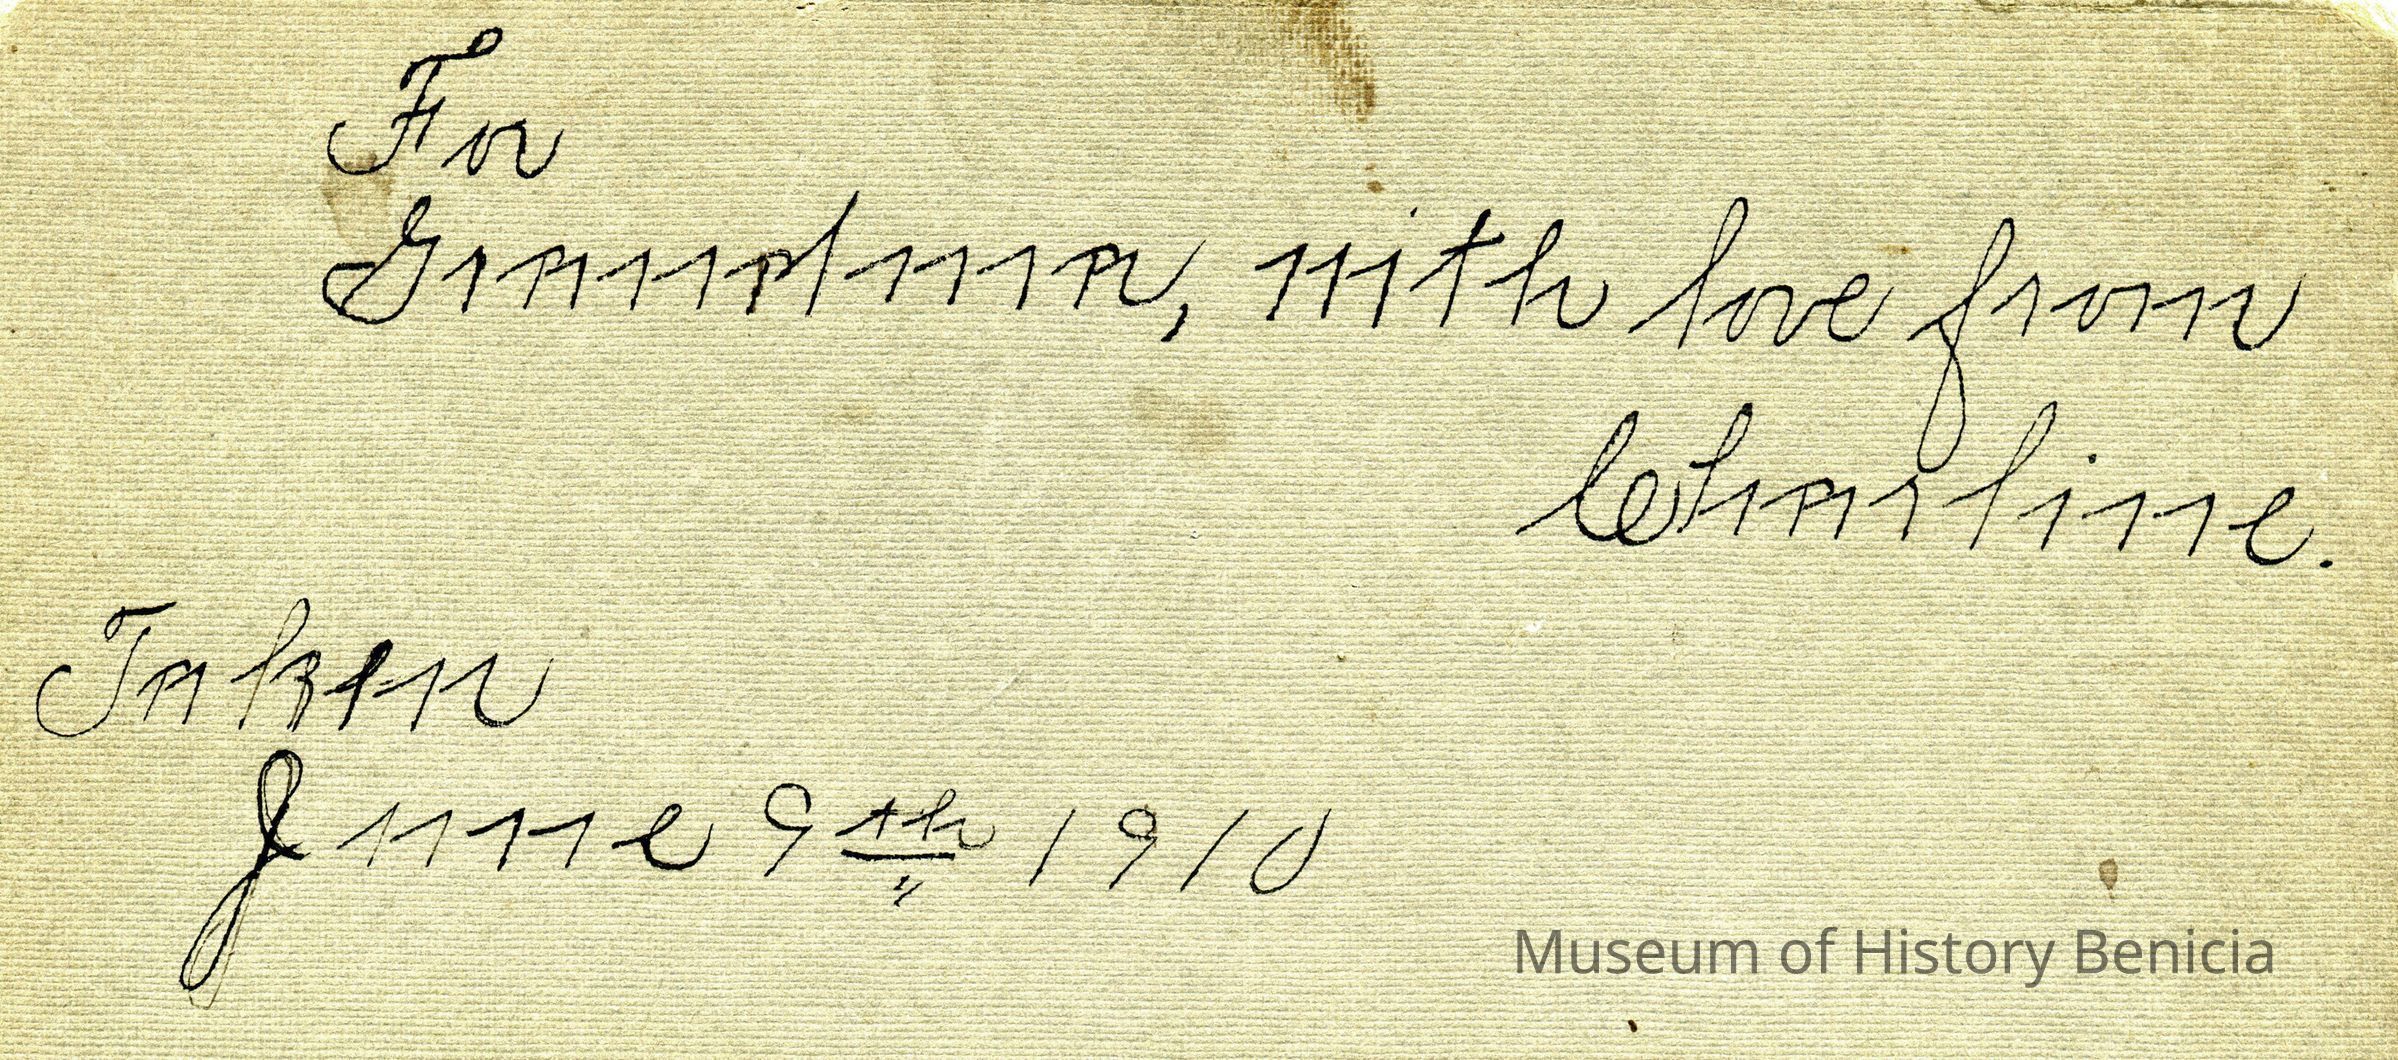 For
Grandma, with love from
Charline.
Taken
June 9th 1910
Museum of History Benicia